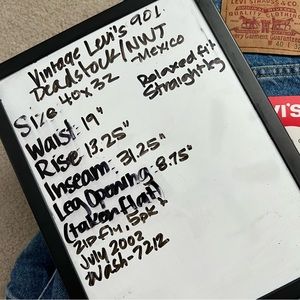 Vintage Levi's 901
Deadstock/NWT
-Mexico
Size 40x32
Relaxed fit
Straight leg
Waist: 19"
Rise 13.25"
Inseam: 31.25"
Leg Opening: 8.75"
(taken flat)
zip fly, 5pk
July 2002
Wash-7212
LEVI STRAUSS & CO.
QUALITY CLOTHING